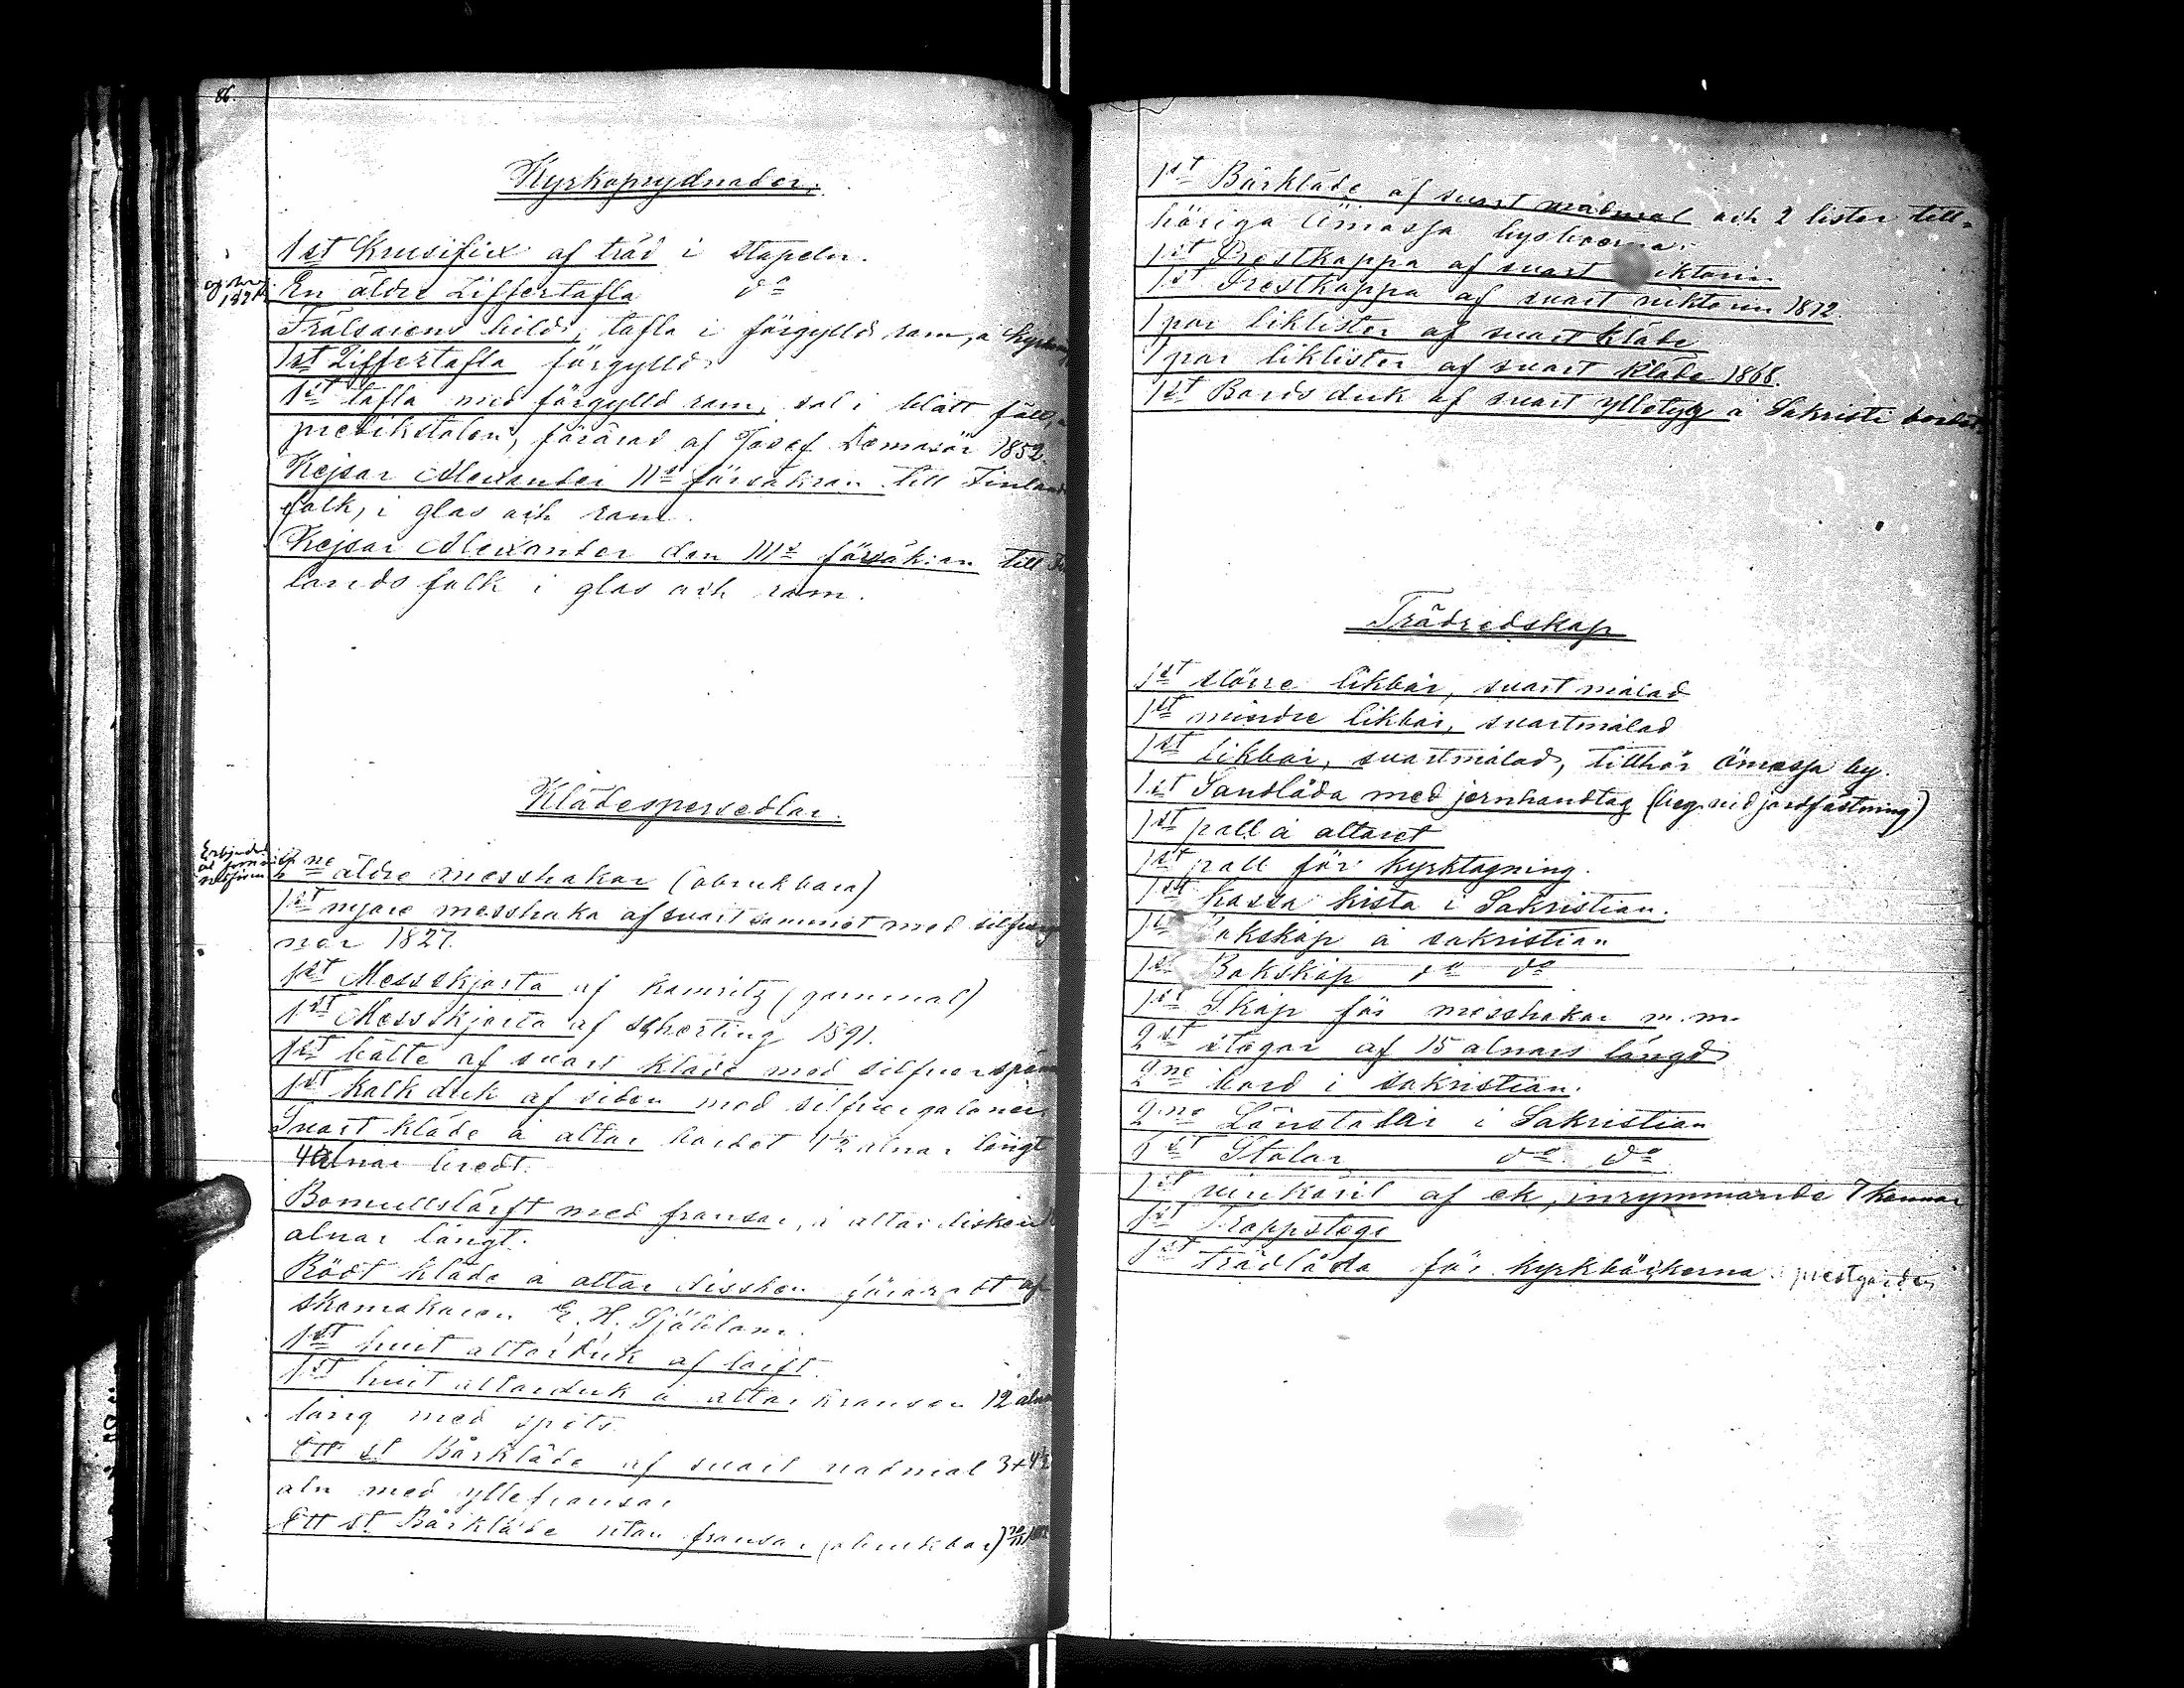 86.
Kyrkoprydnader.
1 st Krusifix af träd i stapeln.
En äldre Ziffertafla do
Frälsarens bild, tafla i förgylld ram, å
1 st Ziffertafla förgylld.
1 st tafla med förgylld ram, sol i blått fält, å
predikstolen, förärad af Josef Demasör 1852.
Kejsar Alexander IIs försäkran till Finlands
folk, i glas och ram.
Kejsar Alexander den IIIs försäkran till Fin
lands folk i glas och ram.
Klädespersedlar.
2ne äldre messhakar (obrukbara)
1 st nyare messhaka af svart sammet med silfvergalo
ner 1827.
1 st Messskjorta af kamritz (gammal)
1 st Messskjorta af scherting 1891.
1 st bälte af svart kläde med silfverspänne
1 st kalkduk af siden med silfvergaloner.
Svart kläde å altar bordet 4 1/2 alnar långt
4 alnar bredt.
Bomullslärft med fransar, å altardisken
alnar långt.
Rödt kläde å altar dissken föräradt af
skomakaren E. H. Sjöblom.
1 st hvit altarduk af lärft.
1 st hvit altarduk å altar kransen 12 alnar
lång med spets.
Ett st Bårkläde af svart vadmal 3 + 4 1/2
aln med yllefransar
Ett st Bårkläde utan fransar (obrukbar)
1 st Bårkläde af svart vadmal och 2 lister till-
höriga Ömossa byshvarna.
1 st Prestkappa af svart viktorin
1 st Prestkappa af svart viktorin 1872.
1 par liklister af svart kläde
1 par liklister af svart kläde 1868.
1 st Bordsduk af svart ylletyg å Sakristi bordet
Trädredskap
1 st större likbår, svart målad
1 st mindre likbår, svartmålad
1 st likbår, svartmålad, tillhör Ömossa by.
1 st Sandlåda med jernhandtag (beg. vid jordfästning)
1 st pall å altaret
1 st pall för kyrktagning.
1 st kassa kista i Sakristian.
1 st Bokskåp å sakristian
1 st Bokskåp do do
1 st Skåp för messhakar m.m.
2 st stegar af 15 alnars längd
2ne bord i sakristian.
2ne Länstolar i Sakristian
6 st Stolar do do
1 st vinkäril af ek, inrymmande 7 kannor
1 st Trappstege
1 st trädlåda för kyrkböckerna i prestgården